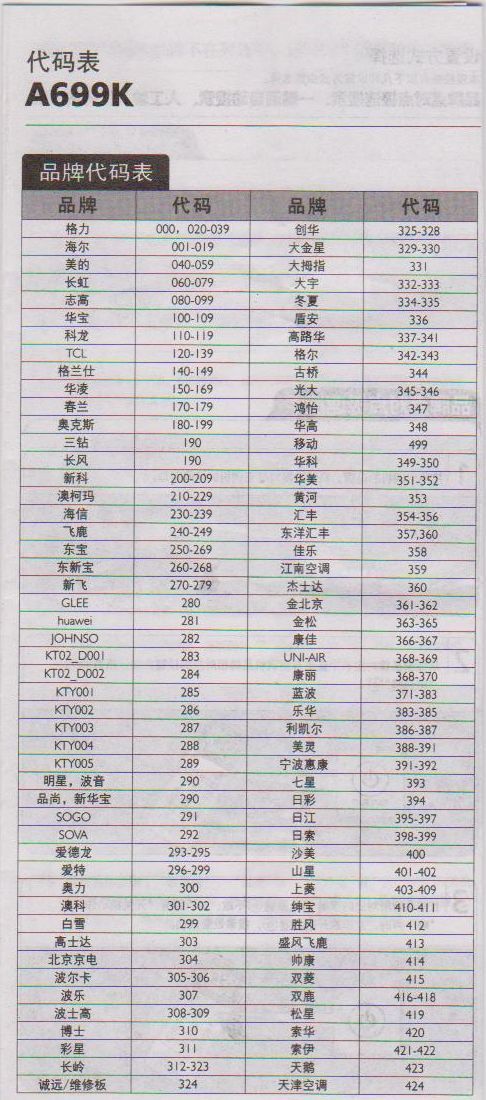 代码表
A699K
品牌代码表
品牌 代码 品牌 代码
格力 000，020-039 创华 325-328
海尔 001-019 大金星 329-330
美的 040-059 大拇指 331
长虹 060-079 大宇 332-333
志高 080-099 冬夏 334-335
华宝 100-109 盾安 336
科龙 110-119 高路华 337-341
TCL 120-139 格尔 342-343
格兰仕 140-149 古桥 344
华凌 150-169 光大 345-346
春兰 170-179 鸿怡 347
奥克斯 180-199 华高 348
三钻 190 移动 499
长风 190 华科 349-350
新科 200-209 华美 351-352
澳柯玛 210-229 黄河 353
海信 230-239 汇丰 354-356
飞鹿 240-249 东洋汇丰 357,360
东宝 250-269 佳乐 358
东新宝 260-268 江南空调 359
新飞 270-279 杰士达 360
GLEE 280 金北京 361-362
huawei 281 金松 363-365
JOHNSO 282 康佳 366-367
KT02_D001 283 UNI-AIR 368-369
KT02_D002 284 康丽 368-370
KTY001 285 蓝波 371-383
KTY002 286 乐华 383-385
KTY003 287 利凯尔 386-387
KTY004 288 美灵 388-391
KTY005 289 宁波惠康 391-392
明星，波音 290 七星 393
品尚，新华宝 290 日彩 394
SOGO 291 日江 395-397
SOVA 292 日索 398-399
爱德龙 293-295 沙美 400
爱特 296-299 山星 401-402
奥力 300 上菱 403-409
澳科 301-302 绅宝 410-411
白雪 299 胜风 412
高士达 303 盛风飞鹿 413
北京京电 304 帅康 414
波尔卡 305-306 双菱 415
波乐 307 双鹿 416-418
波士高 308-309 松星 419
博士 310 索华 420
彩星 311 索伊 421-422
长岭 312-323 天鹅 423
诚远/维修板 324 天津空调 424